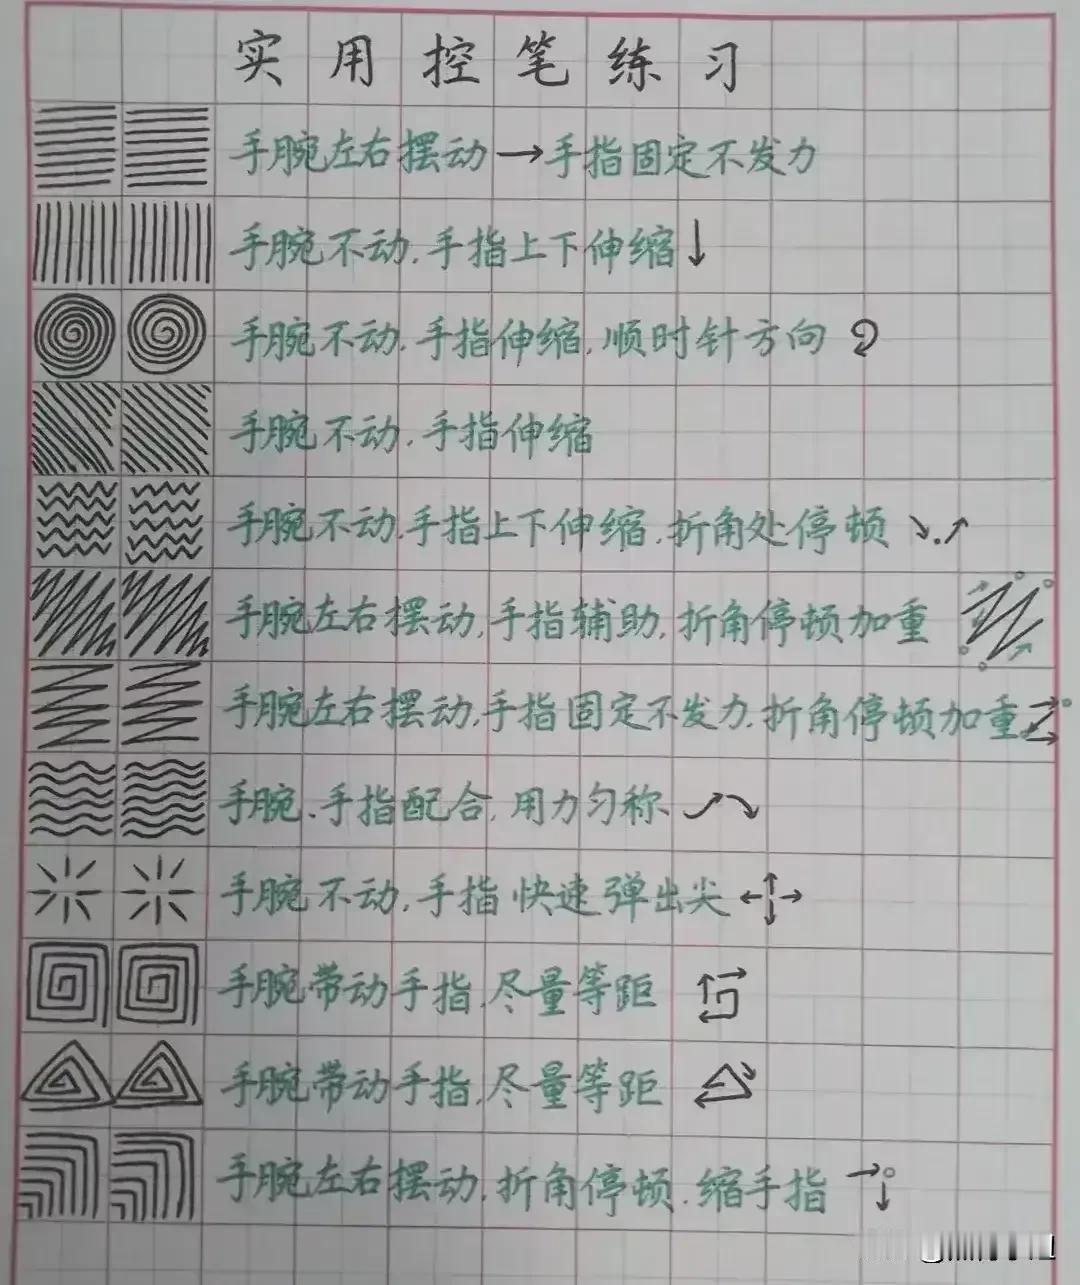 实用控笔练习
手腕左右摆动→手指固定不发力
手腕不动.手指上下伸缩↓
手腕不动.手指伸缩.顺时针方向
手腕不动.手指伸缩
手腕不动.手指上下伸缩.折角处停顿
手腕左右摆动.手指辅助.折角停顿加重
手腕左右摆动.手指固定不发力.折角停顿加重
手腕、手指配合.用力匀称
手腕不动.手指快速弹出尖
手腕带动手指.尽量等距
手腕带动手指.尽量等距
手腕左右摆动.折角停顿.缩手指